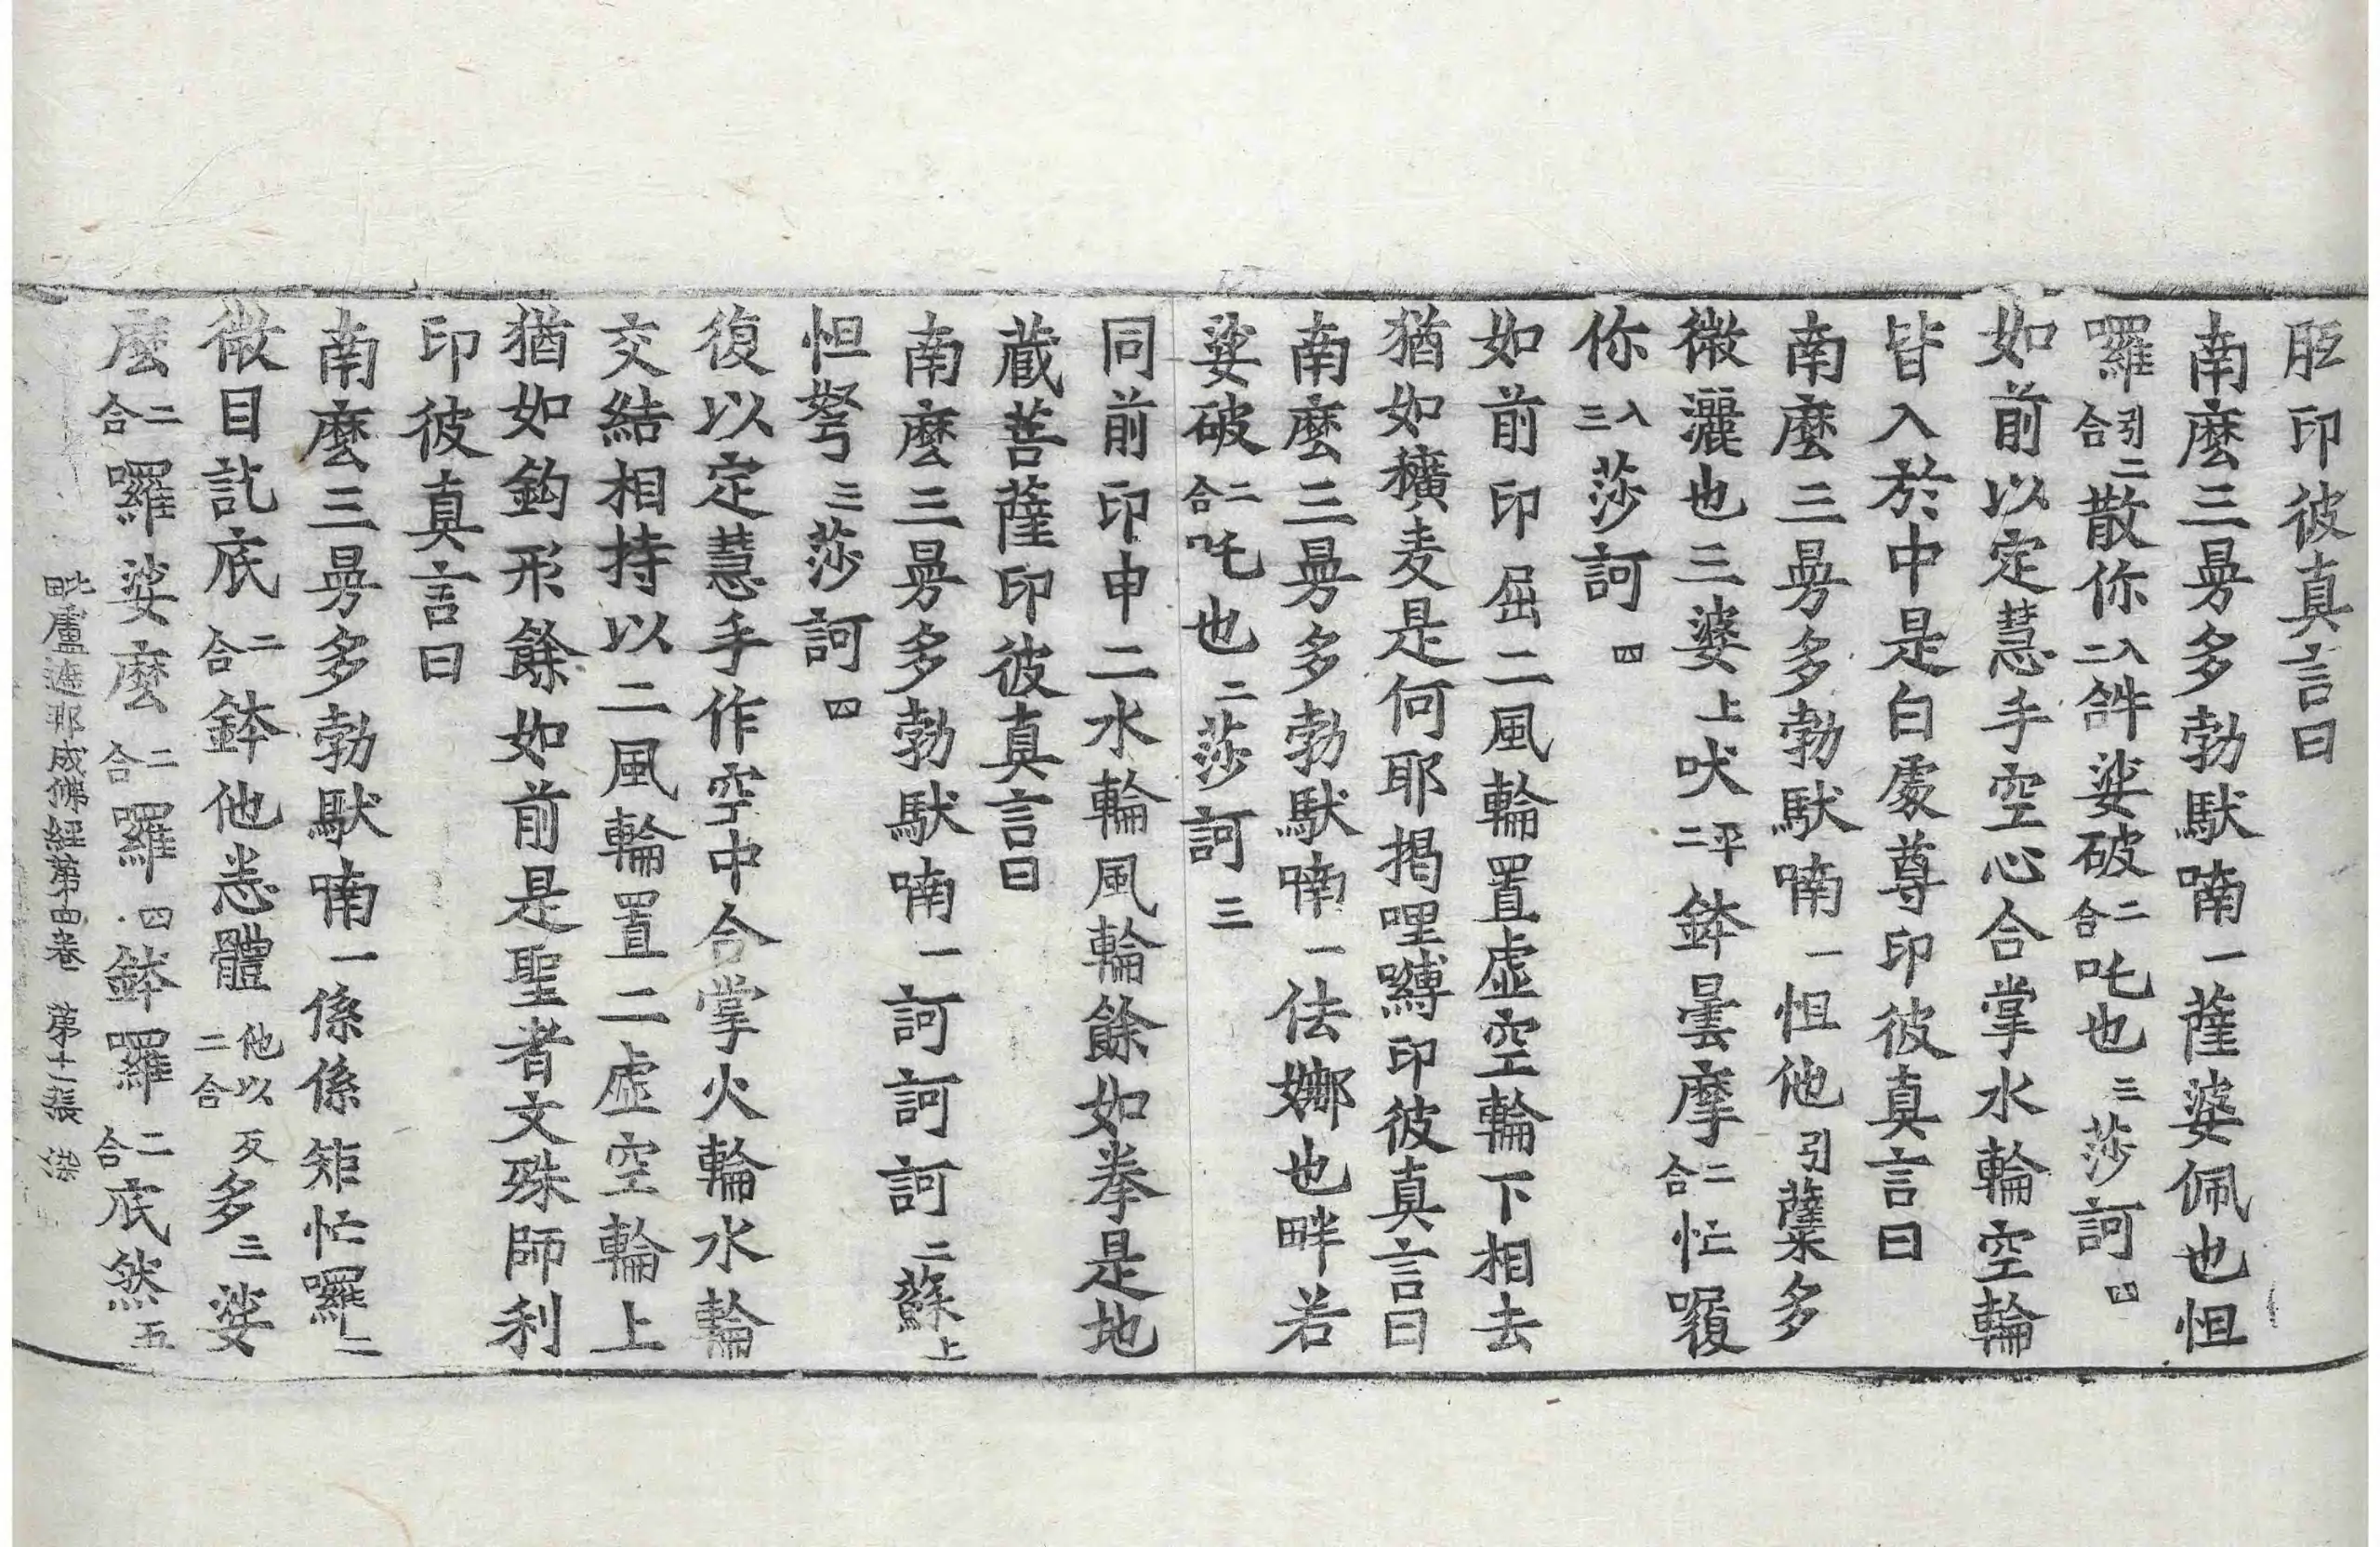 胝印彼真言曰
南麼三曼多勃馱喃一薩婆佩也怛
囉引二合散你入二餁娑破二合吒也三莎訶四
如前以定慧手空心合掌水輪空輪
皆入於中是白處尊印彼真言曰
南麼三曼多勃馱喃一怛他引蘖多
微灑也三婆上吠平二鉢曇摩二合忙囉
你入三莎訶四
如前印屈二風輪置虛空輪下相去
猶如穬麦是何耶揭哩嚩印彼真言曰
南麼三曼多勃馱喃一佉娜也畔若
娑破二合吒也二莎訶三
同前印申二水輪風輪餘如拳是地
蔵菩薩印彼真言曰
南麼三曼多勃馱喃一訶訶訶二蘇上
怛弩三莎訶四
復以定慧手作空中合掌火輪水輪
交結相持以二風輪置二虛空輪上
猶如鈎形餘如前是聖者文殊師利
印彼真言曰
南麼三曼多勃馱喃一係係矩忙囉二
微目訖底二合鉢他悉體他以反二合多三娑
麼二合囉娑麼二合囉四鉢囉二合底然五
毗盧遮那成佛經第四卷 第十二張 染